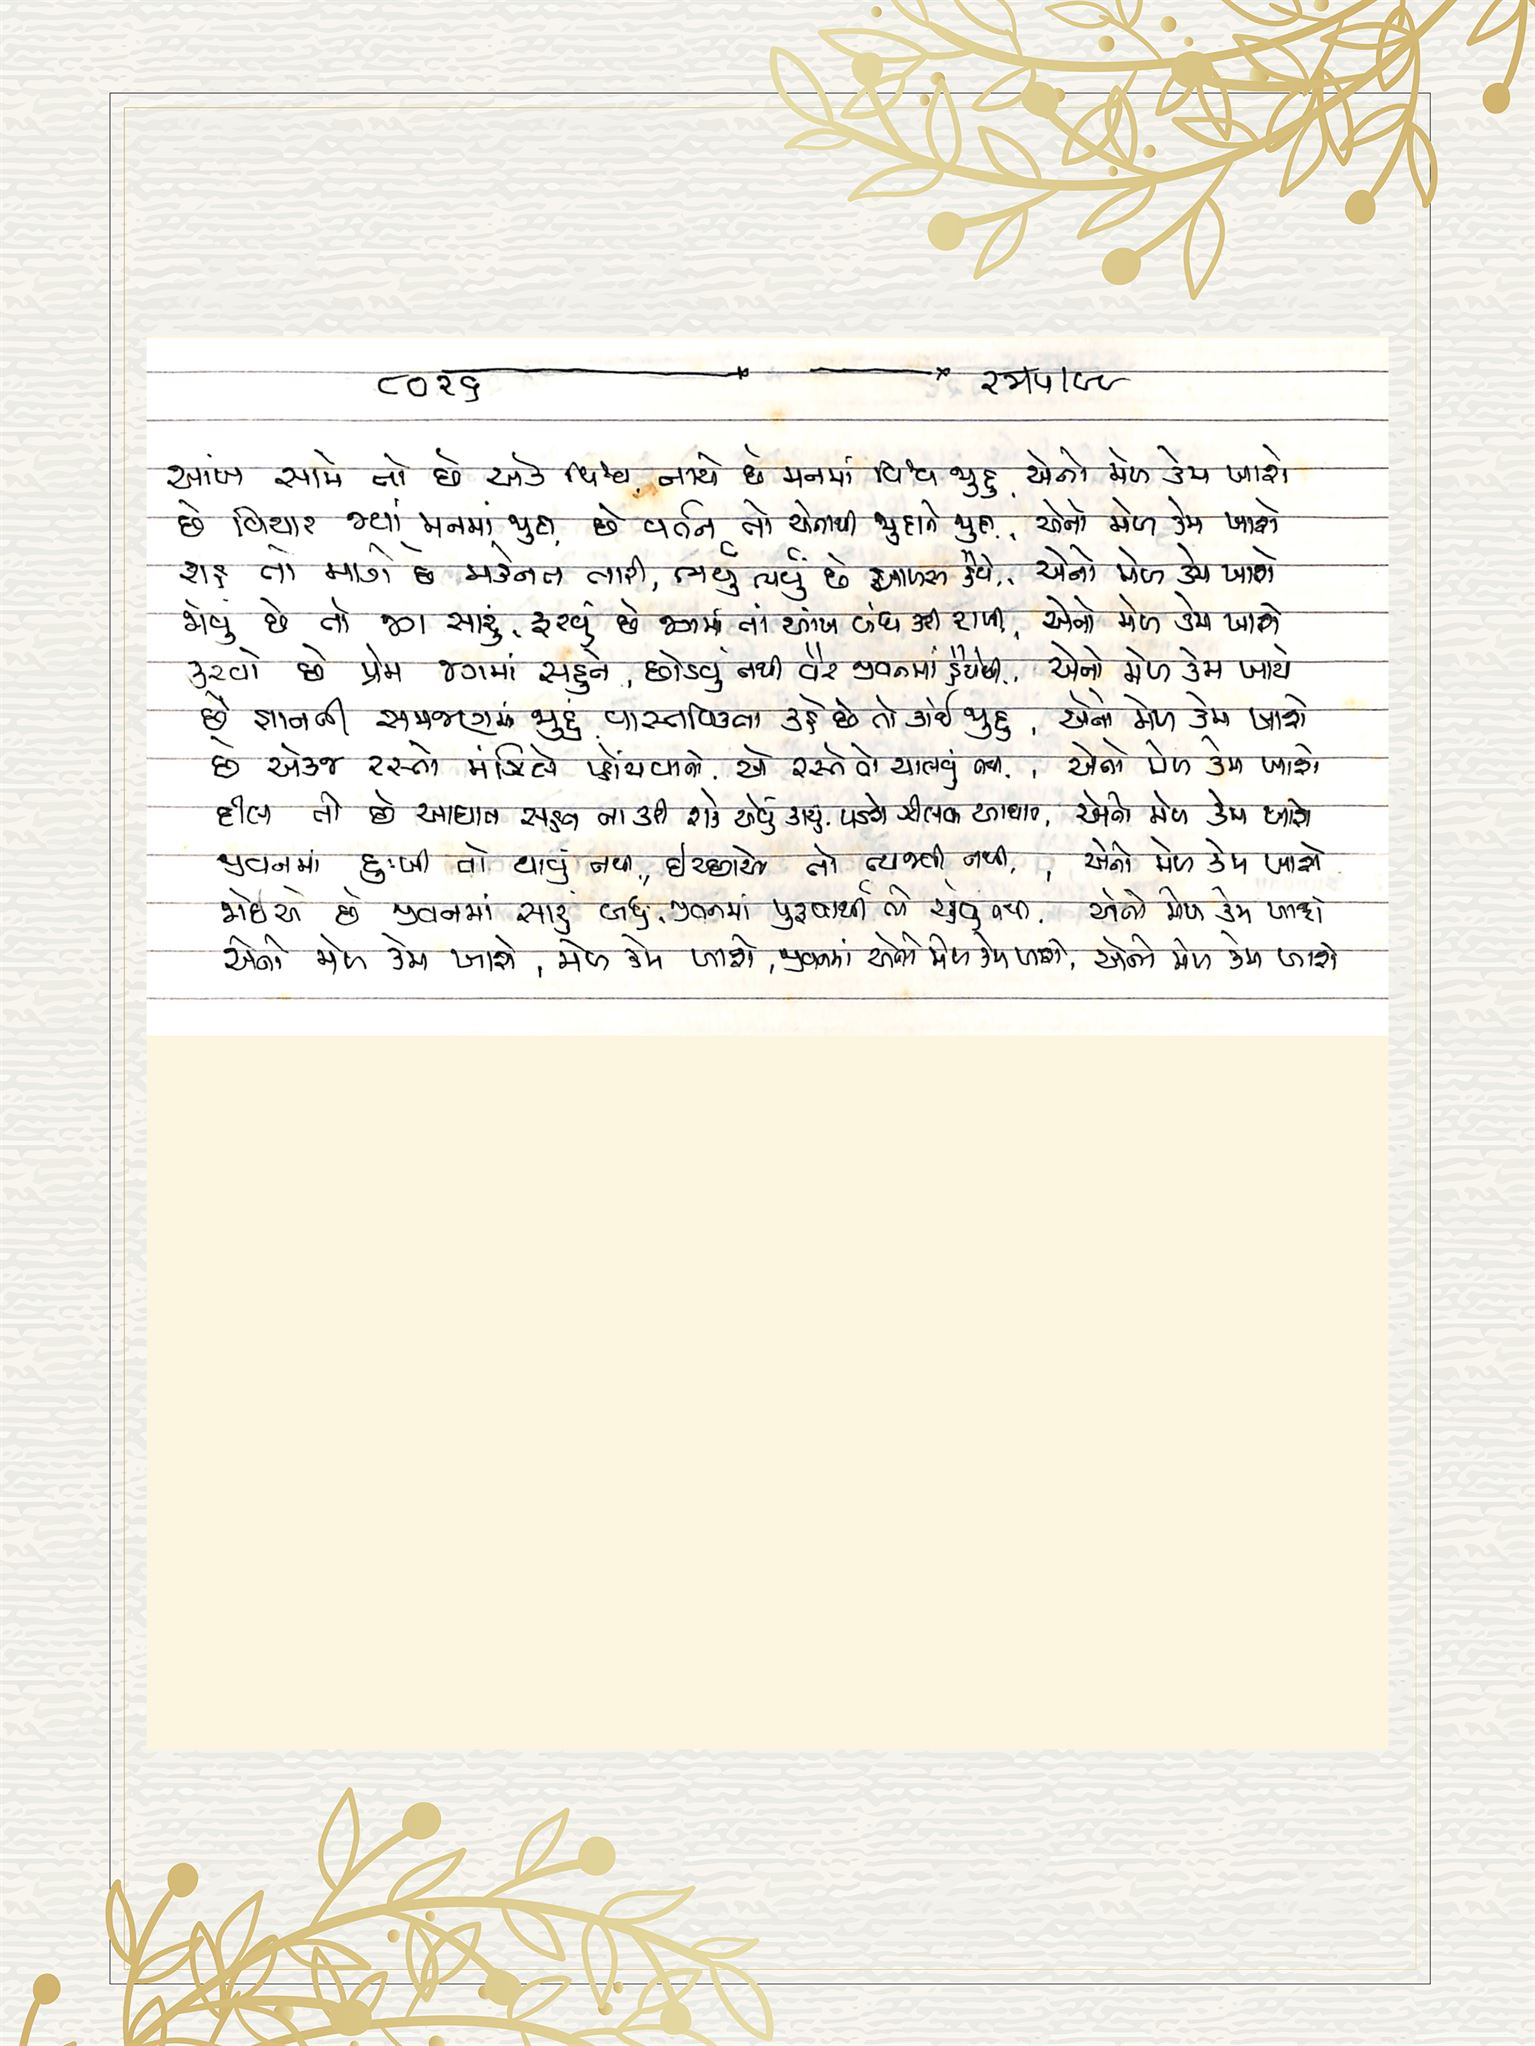 ૮૦૨૬
આંખ સામે તો છે એક વિશ્વ, નાચે છે મનમાં વિશ્વ જુદુ, એનો મેળ કેમ ખાશે
છે વિચાર જ્યાં મનમાં જુદા, છે વર્તન તો એનાથી જુદાને જુદા, એનો મેળ કેમ ખાશે
રાહ તો માગે છે મહેનત તારી, ત્યાં છે આળસ હૈયે, એનો મેળ કેમ ખાશે
જોવું છે તો જગ સારું, ફરવું છે જગમાં તાં આંખ બંધ કરી રાખી, એનો મેળ કેમ ખાશે
કરવો છે પ્રેમ જગમાં સહુને, છોડવું નથી વૈર જીવનમાં હૈયેથી, એનો મેળ કેમ ખાશે
છે જ્ઞાનની સમજણમાં જુદું, વાસ્તવિકતા કહે છે તો કાંઈ જુદુ, એનો મેળ કેમ ખાશે
છે એકજ રસ્તો મંઝિલે પ્હોંચવાનો, એ રસ્તે તો ચાલવું નથી, એનો મેળ કેમ ખાશે
દીલ તો છે આઘાત સહન ના કરી શકે એવું કાચું, પડશે ઝીલવા આઘાત, એનો મેળ કેમ ખાશે
જીવનમાં દુઃખી તો થાવું નથી, ઈચ્છાઓ તો ત્યજવી નથી, એનો મેળ કેમ ખાશે
જોઈએ છે જીવનમાં સારું બધું, જીવનમાં પુરૂષાર્થી તો થવું નથી, એનો મેળ કેમ ખાશે
એનો મેળ કેમ ખાશે, મેળ કેમ ખાશે, જીવનમાં એનો મેળ કેમ ખાશે, એનો મેળ કેમ ખાશે